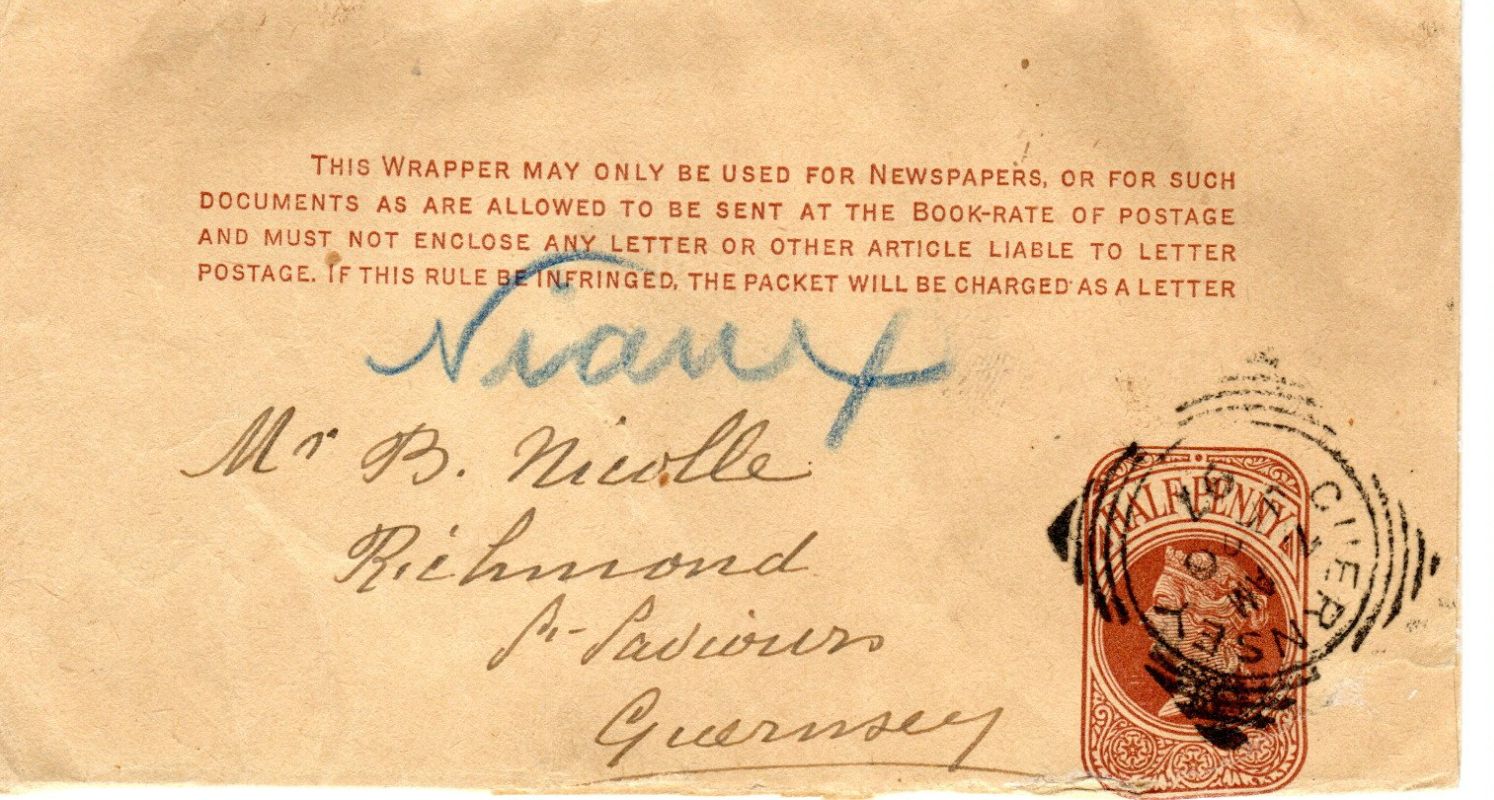 THIS WRAPPER MAY ONLY BE USED FOR NEWSPAPERS, OR FOR SUCH
DOCUMENTS AS ARE ALLOWED TO BE SENT AT THE BOOK-RATE OF POSTAGE
AND MUST NOT ENCLOSE ANY LETTER OR OTHER ARTICLE LIABLE TO LETTER
POSTAGE. IF THIS RULE BE INFRINGED, THE PACKET WILL BE CHARGED AS A LETTER
Niaux
Mr B. Nicolle
Richmond
St Saviours
Guernsey
HALFPENNY
GUERNSEY